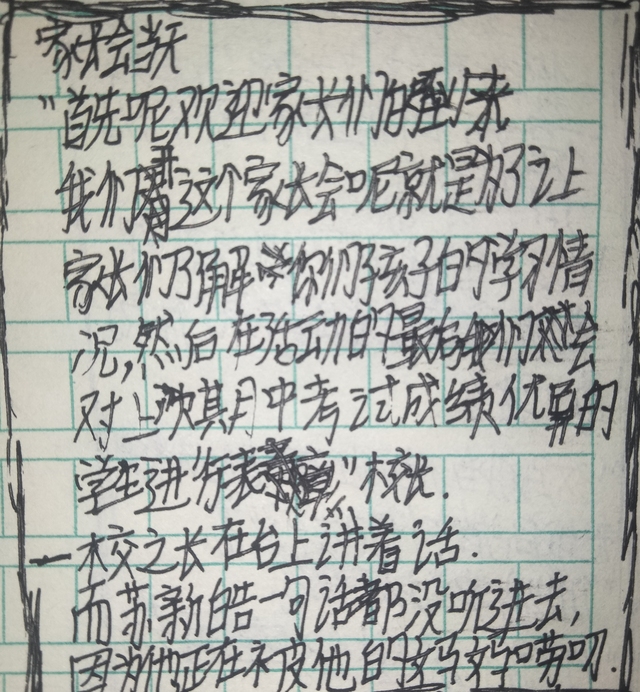 家长会当天
"首先呢欢迎家长们的到来
我们开这个家长会呢就是为了让
家长们了解你们孩子的学习情
况,然后在活动的最后我们会
对上次其月中考试成绩优异的
学生进行表"校长.
一校之长在台上讲着话.
而苏新皓一句话都没听进去,
因为他正在被他的妈妈唠叨.